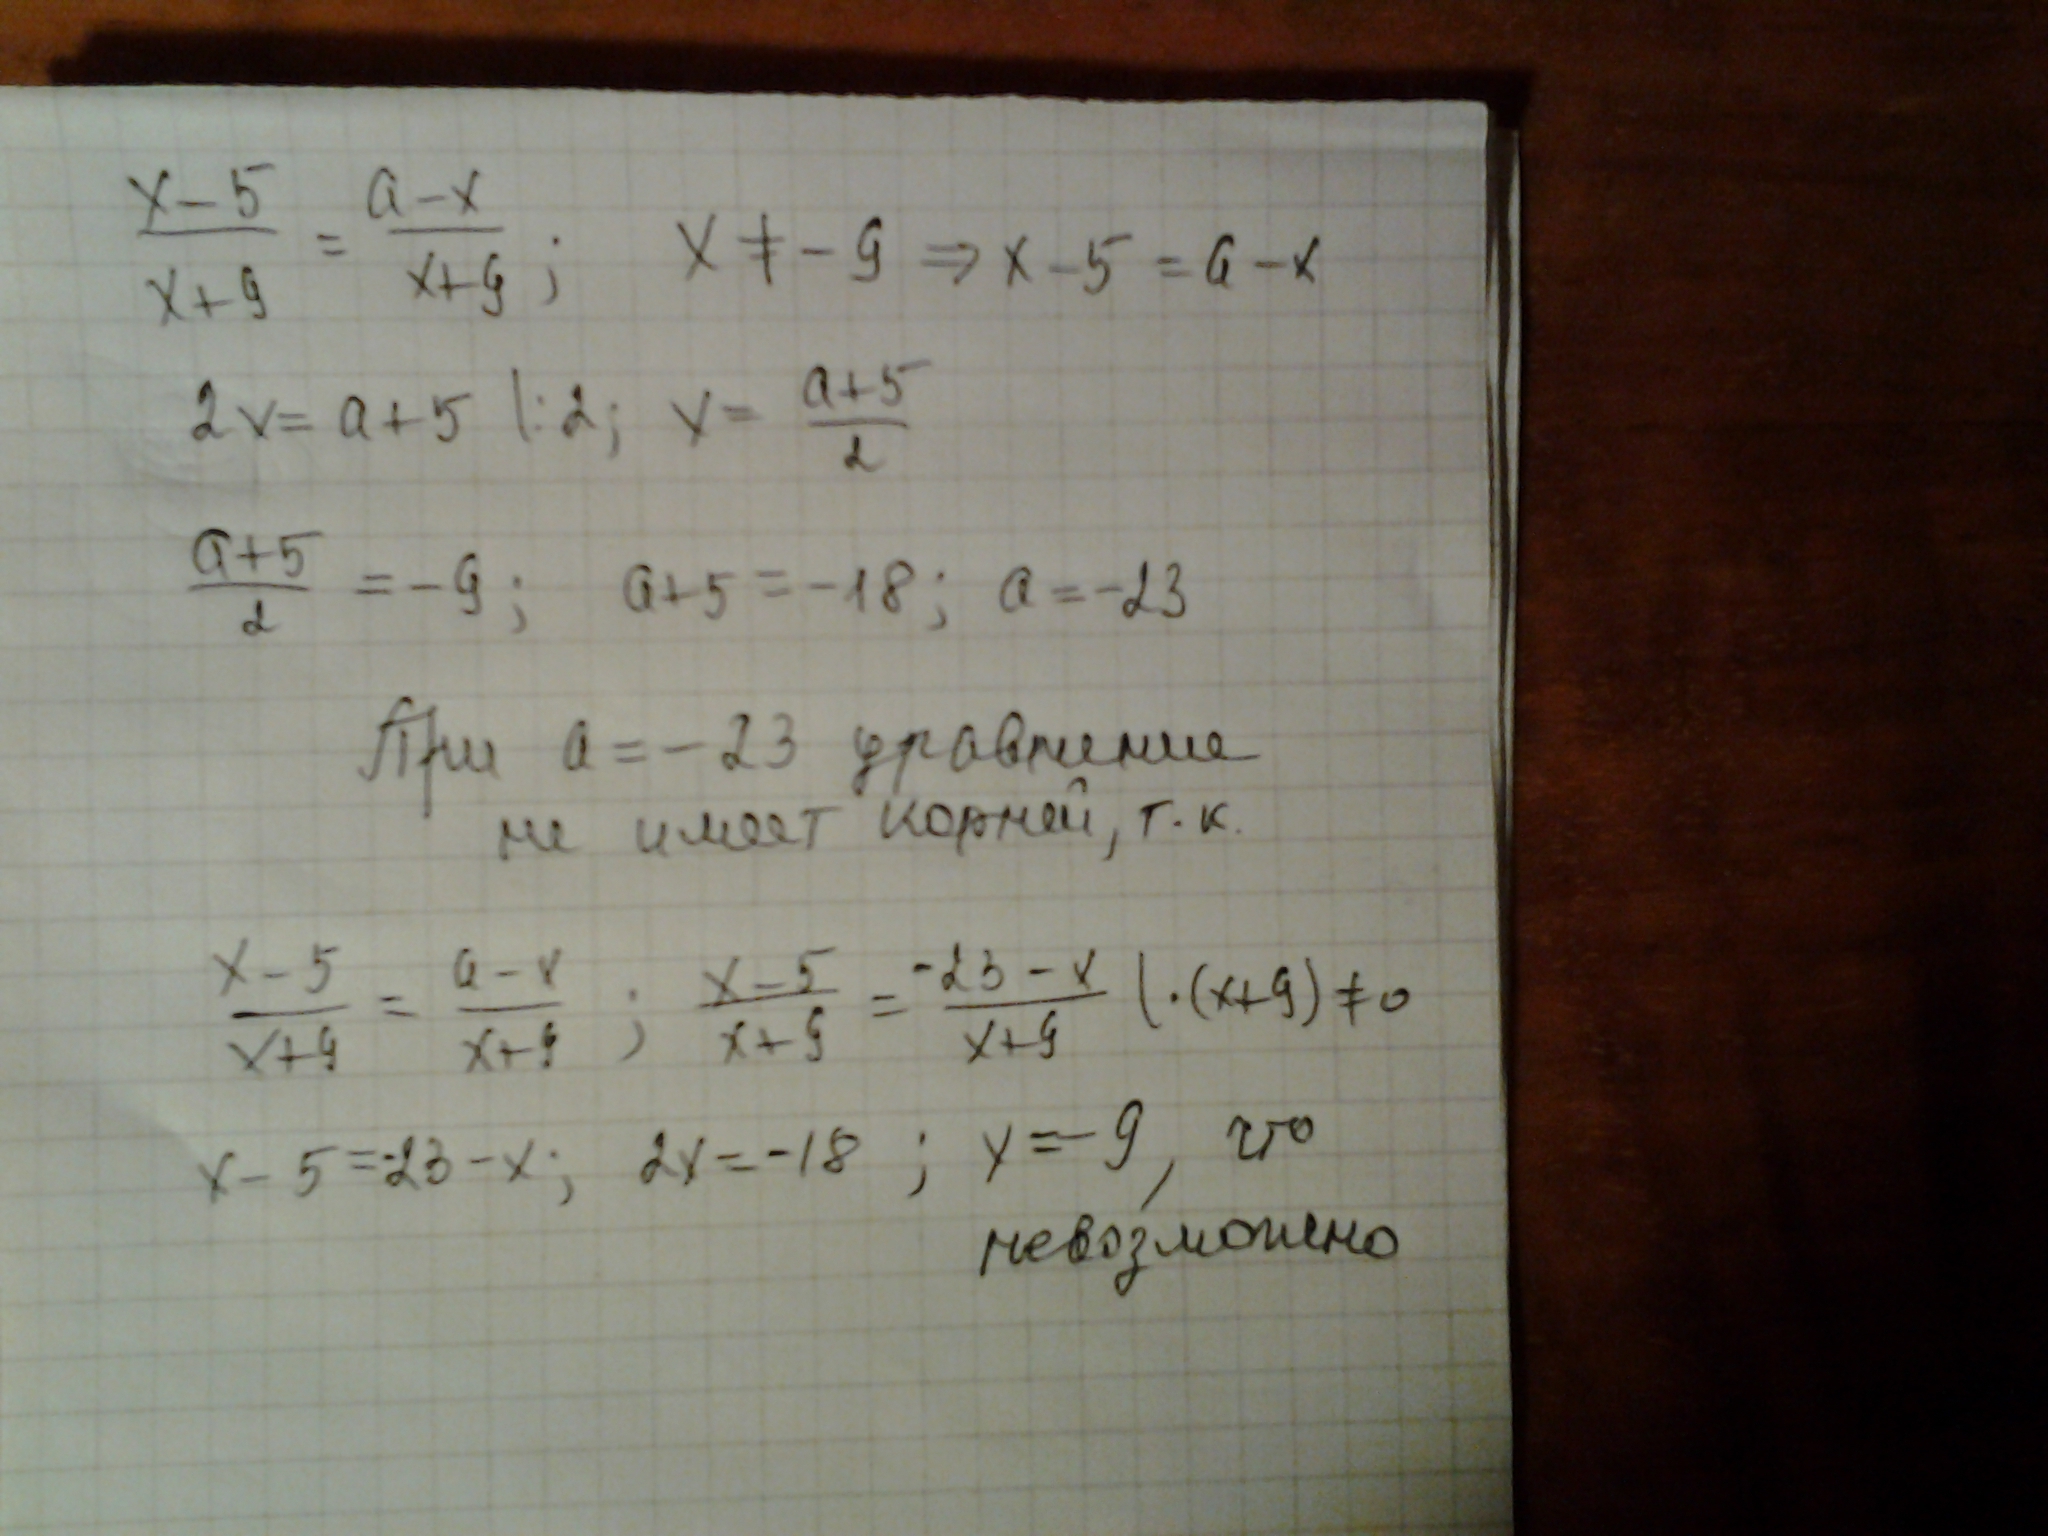 x-5/x+9 = a-x/x+9; x ≠ -9 ⇒ x-5 = a-x
2x = a+5 |:2; x = a+5/2
a+5/2 = -9; a+5 = -18; a = -23
При a = -23 уравнение
не имеет корней, т.к.
x-5/x+9 = a-x/x+9; x-5/x+9 = -23-x/x+9 |·(x+9) ≠ 0
x-5 = -23-x; 2x = -18; x = -9, что
невозможно